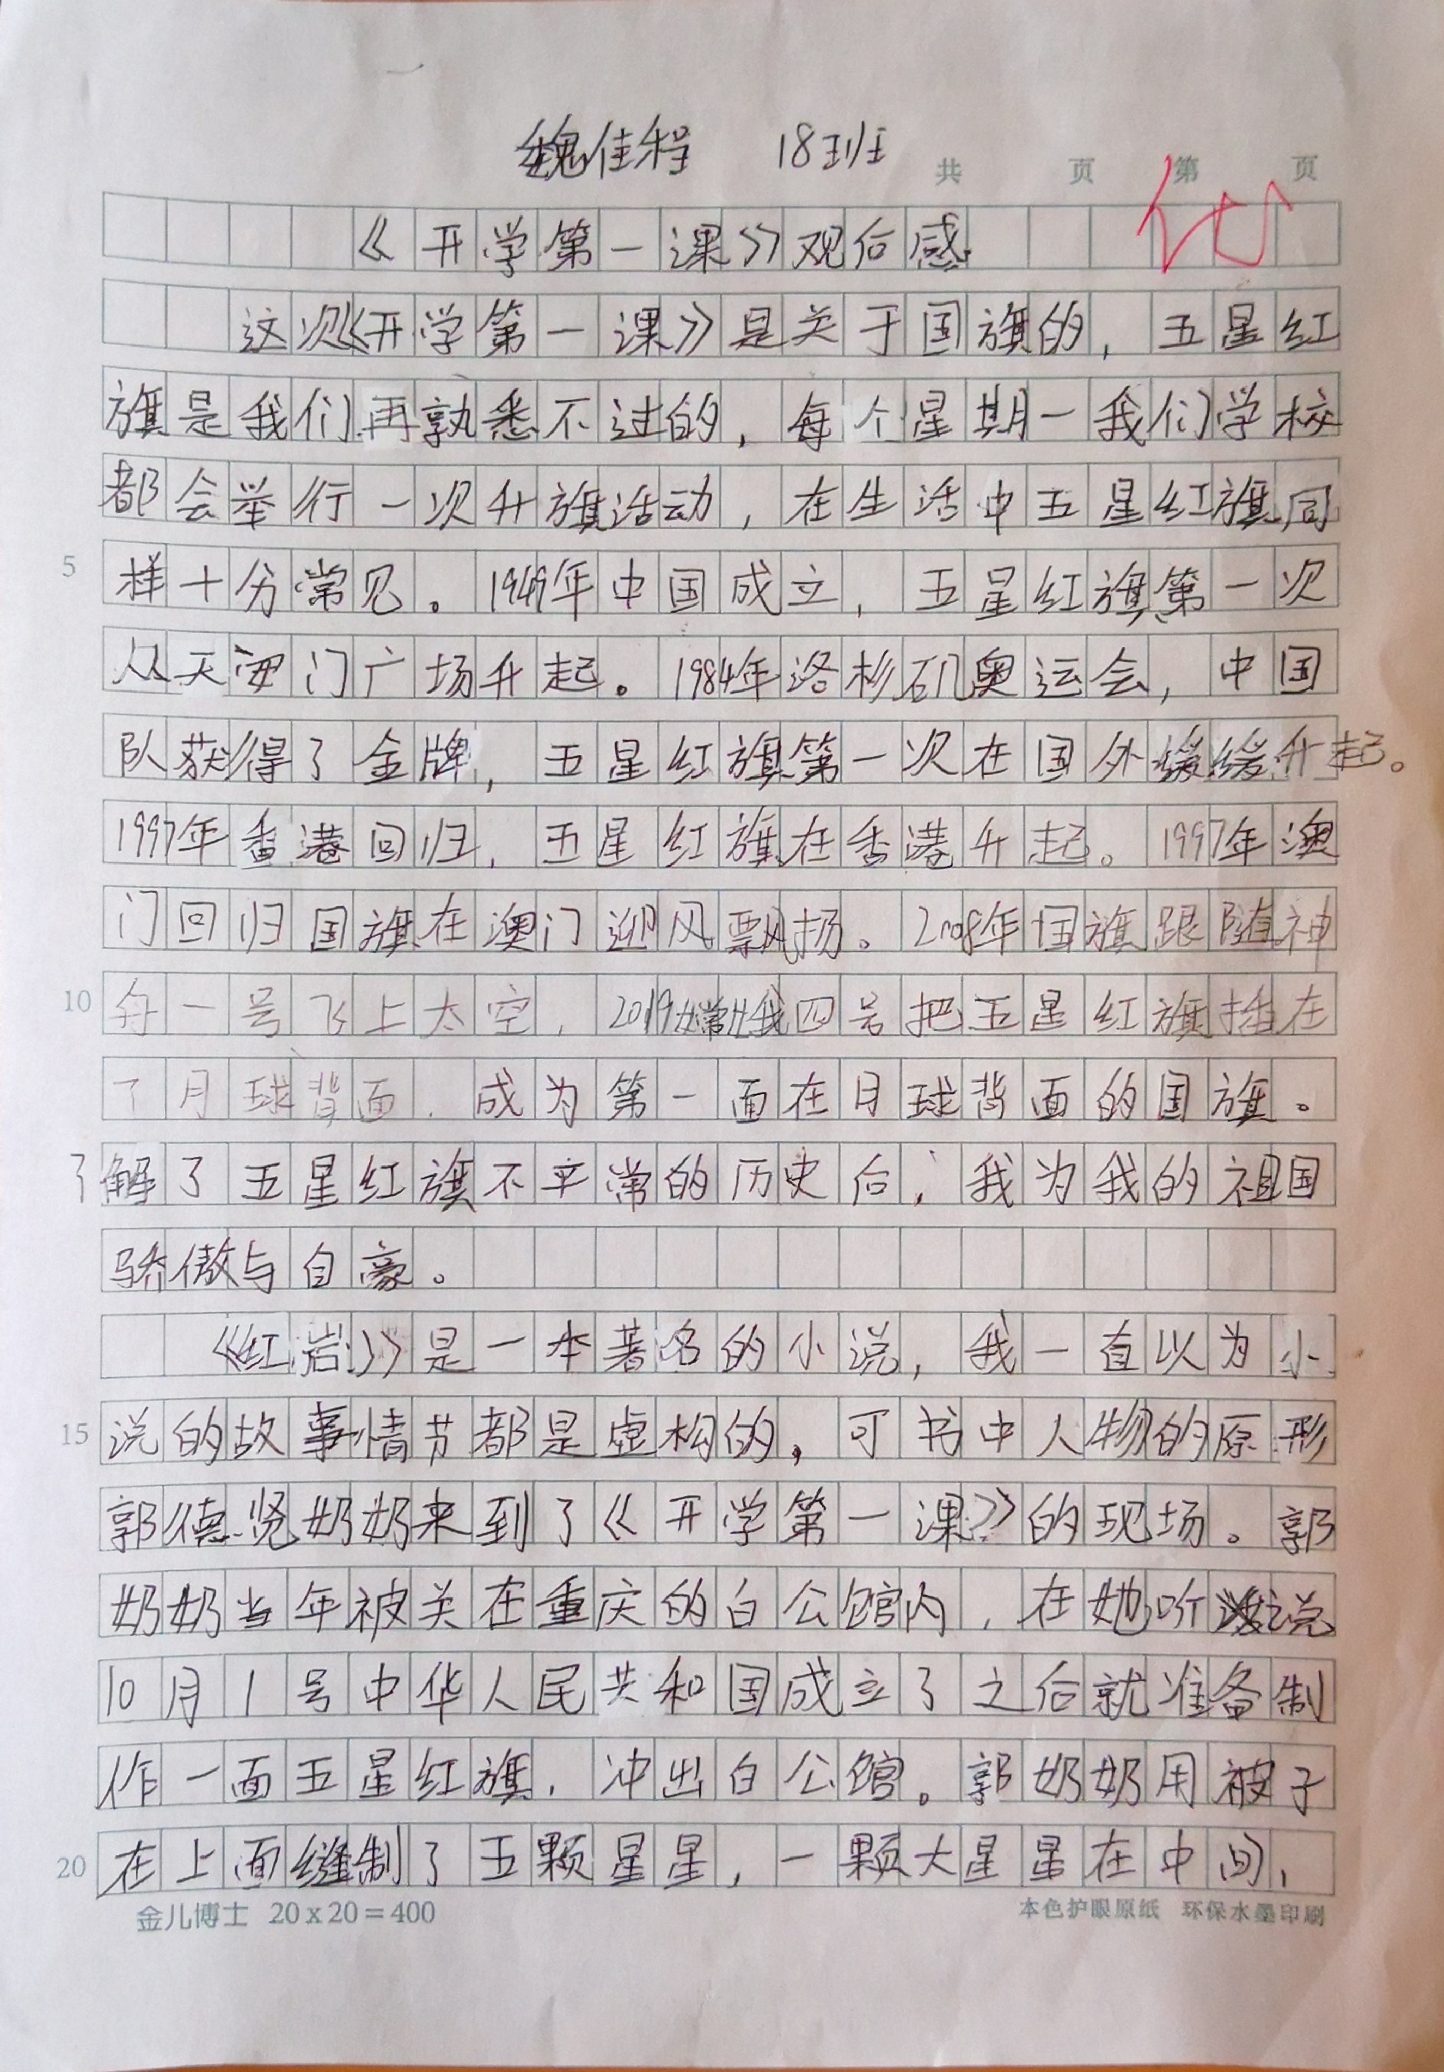 魏佳程 18班
共 页 第 页
优
《开学第一课》观后感
这次《开学第一课》是关于国旗的，五星红
旗是我们再孰悉不过的，每个星期一我们学校
都会举行一次升旗活动，在生活中五星红旗同
样十分常见。1949年中国成立，五星红旗第一次
从天安门广场升起。1984年洛杉矶奥运会，中国
队获得了金牌，五星红旗第一次在国外缓缓升起。
1997年香港回归，五星红旗在香港升起。1997年澳
门回归国旗在澳门迎风飘扬。2008年国旗跟随神
舟一号飞上太空，2019嫦娥四号把五星红旗插在
了月球背面，成为第一面在月球背面的国旗。
了解了五星红旗不平常的历史后，我为我的祖国
骄傲与自豪。
《红岩》是一本著名的小说，我一直以为小
说的故事情节都是虚构的，可书中人物的原形
郭德贤奶奶来到了《开学第一课》的现场。郭
奶奶当年被关在重庆的白公馆内，在她听说
10月1号中华人民共和国成立了之后就准备制
作一面五星红旗，冲出白公馆。郭奶奶用被子
在上面缝制了五颗星星，一颗大星星在中间，
5
10
15
20
金儿博士 20x20=400
本色护眼原纸 环保水墨印刷